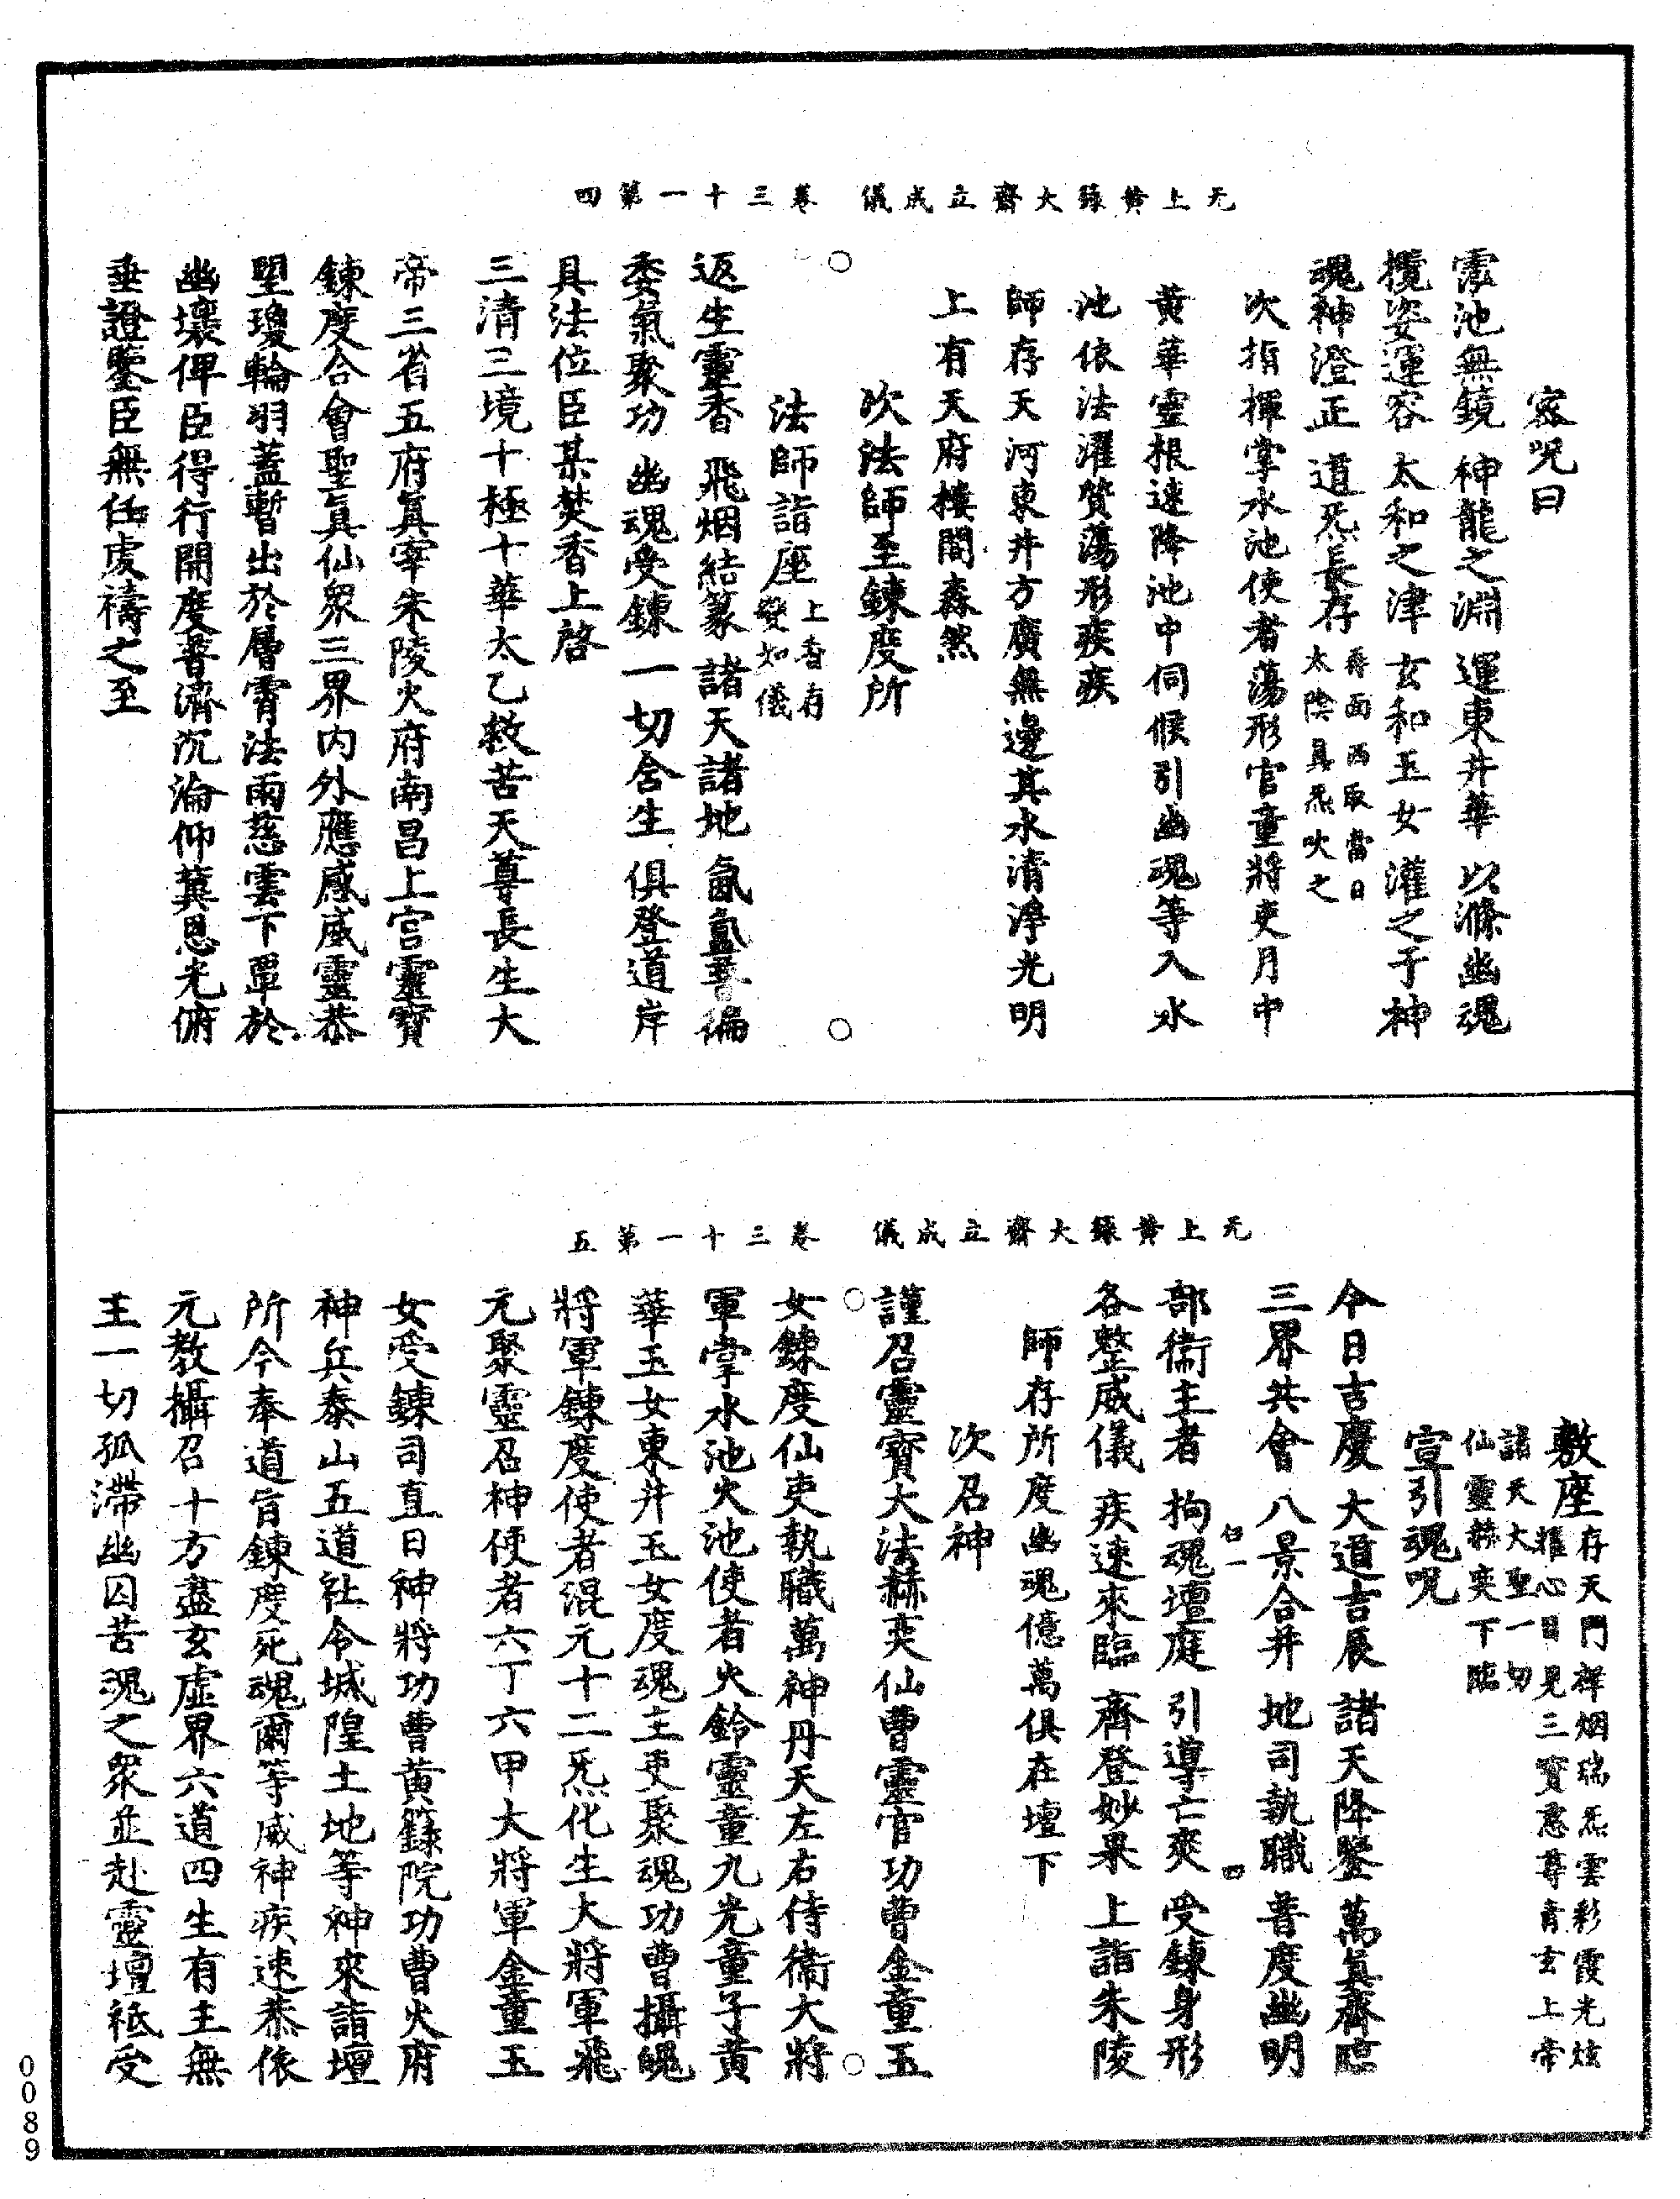 无上黃籙大齋立成儀　卷三十一第四
密呪曰
霐池無鏡　神龍之淵　運東井華　以滌幽魂
攬姿運容　太和之津　玄和玉女　灌之于神
魂神澄正　道炁長存　再面西取當日
太陰真炁吹之
次指揮掌水池使者蕩形官童將吏月中
黃華靈根速降池中伺候引幽魂等入水
池依法濯質蕩形疾疾
師存天河東井方廣無邊其水清淨光明
上有天府樓閣森然
次法師至鍊度所
法師詣座上香存
變如儀
返生靈香　飛烟結篆　諸天諸地　氤氳普徧
委氣聚功　幽魂受鍊　一切含生　俱登道岸
具法位臣某焚香上啓
三清三境十極十華太乙救苦天尊長生大
帝三省五府真宰朱陵火府南昌上宮靈寶
鍊度合會聖真仙眾三界內外應感威靈恭
望瓊輪羽蓋暫出於層霄法雨慈雲下覃於
幽壤俾臣得行開度普濟沉淪仰冀恩光俯
垂證鑒臣無任虔禱之至
无上黃籙大齋立成儀　卷三十一第五
敷座存天門祥烟瑞炁雲彩霞光炫
攉心目見三寶慈尊青玄上帝
諸天大聖一切
仙靈赫奕下臨
宣引魂呪
今日吉慶　大道吉辰　諸天降鑒　萬真齊臨
三界共會　八景合并　地司執職　普度幽明
部衛主者　拘魂壇庭　引導亡爽　受鍊身形
各整威儀　疾速來臨　齊登妙果　上詣朱陵
師存所度幽魂億萬俱在壇下
次召神
謹召靈寶大法赫奕仙曹靈官功曹金童玉
女鍊度仙吏執職萬神丹天左右侍衛大將
軍掌水池火池使者火鈴靈童九光童子黃
華玉女東井玉女度魂主吏聚魂功曹攝魄
將軍鍊度使者混元十二炁化生大將軍飛
元聚靈召神使者六丁六甲大將軍金童玉
女受鍊司直日神將功曹黃籙院功曹火府
神兵泰山五道社令城隍土地等神來詣壇
所今奉道旨鍊度死魂爾等威神疾速恭依
元教攝召十方盡玄虛界六道四生有主無
主一切孤滯幽囚苦魂之眾並赴靈壇祗受
0089